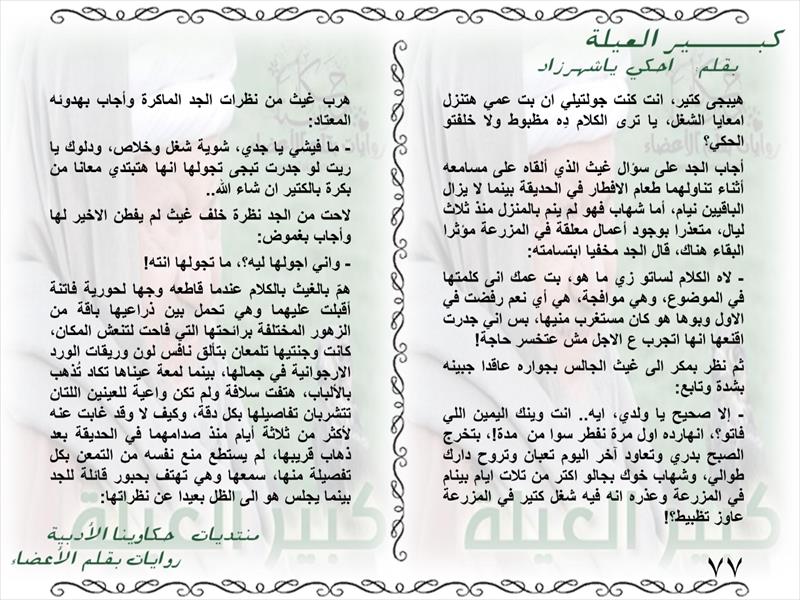 كبـــــير العيلة
بقلم احكي ياشهرزاد
هيبجى كتير، انت كنت جولتيلي ان بت عمي هتنزل
امعايا الشغل، يا ترى الكلام دِه مظبوط ولا خلفتو
الحكي؟
أجاب الجد على سؤال غيث الذي ألقاه على مسامعه
أثناء تناولهما طعام الافطار في الحديقة بينما لا يزال
الباقيين نيام، أما شهاب فهو لم ينم بالمنزل منذ ثلاث
ليال، متعذرا بوجود أعمال معلقة في المزرعة مؤثرا
البقاء هناك، قال الجد مخفيا ابتسامته:
- لاه الكلام لساتو زي ما هو، بت عمك انى كلمتها
في الموضوع، وهي موافجة، هي أي نعم رفضت في
الاول وبوها هو كان مستغرب منيها، بس اني جدرت
اقنعها انها اتجرب ع الاجل مش عتخسر حاجة!
ثم نظر بمكر الى غيث الجالس بجواره عاقدا جبينه
بشدة وتابع:
- إلا صحيح يا ولدي، ايه.. انت وينك اليمين اللي
فاتو؟، انهارده اول مرة نفطر سوا من مدة!، بتخرج
الصبح بدري وتعاود آخر اليوم تعبان وتروح دارك
طوالي، وشهاب خوك بجالو اكتر من تلات ايام بينام
في المزرعة وعذره انه فيه شغل كتير في المزرعة
عاوز تظبيط؟!
هرب غيث من نظرات الجد الماكرة وأجاب بهدوئه
المعتاد:
- ما فيشي يا جدي، شوية شغل وخلاص، ودلوك يا
ريت لو جدرت تبجى تجولها انها هتبتدي معانا من
بكرة بالكتير ان شاء الله..
لاحت من الجد نظرة خلف غيث لم يفطن الاخير لها
وأجاب بغموض:
- واني اجولها ليه؟، ما تجولها انته!
همّ بالغيث بالكلام عندما قاطعه وجها لحورية فاتنة
أقبلت عليهما وهي تحمل بين ذراعيها باقة من
الزهور المختلفة برائحتها التي فاحت لتنعش المكان،
كانت وجنتيها تلمعان بتألق نافس لون وريقات الورد
الارجوانية في جمالها، بينما لمعة عيناها تكاد تُذهب
بالألباب، هتفت سلافة ولم تكن واعية للعينين اللتان
تتشربان تفاصيلها بكل دقة، وكيف لا وقد غابت عنه
لأكثر من ثلاثة أيام منذ صدامهما في الحديقة بعد
ذهاب قريبها، لم يستطع منع نفسه من التمعن بكل
تفصيلة منها، سمعها وهي تهتف بحبور قائلة للجد
بينما يجلس هو الى الظل بعيدا عن نظراتها:
كبير العيلة
كبير العيلة
منتديات حكاوينا الأدبية
روايات بقلم الأعضاء
٧٧